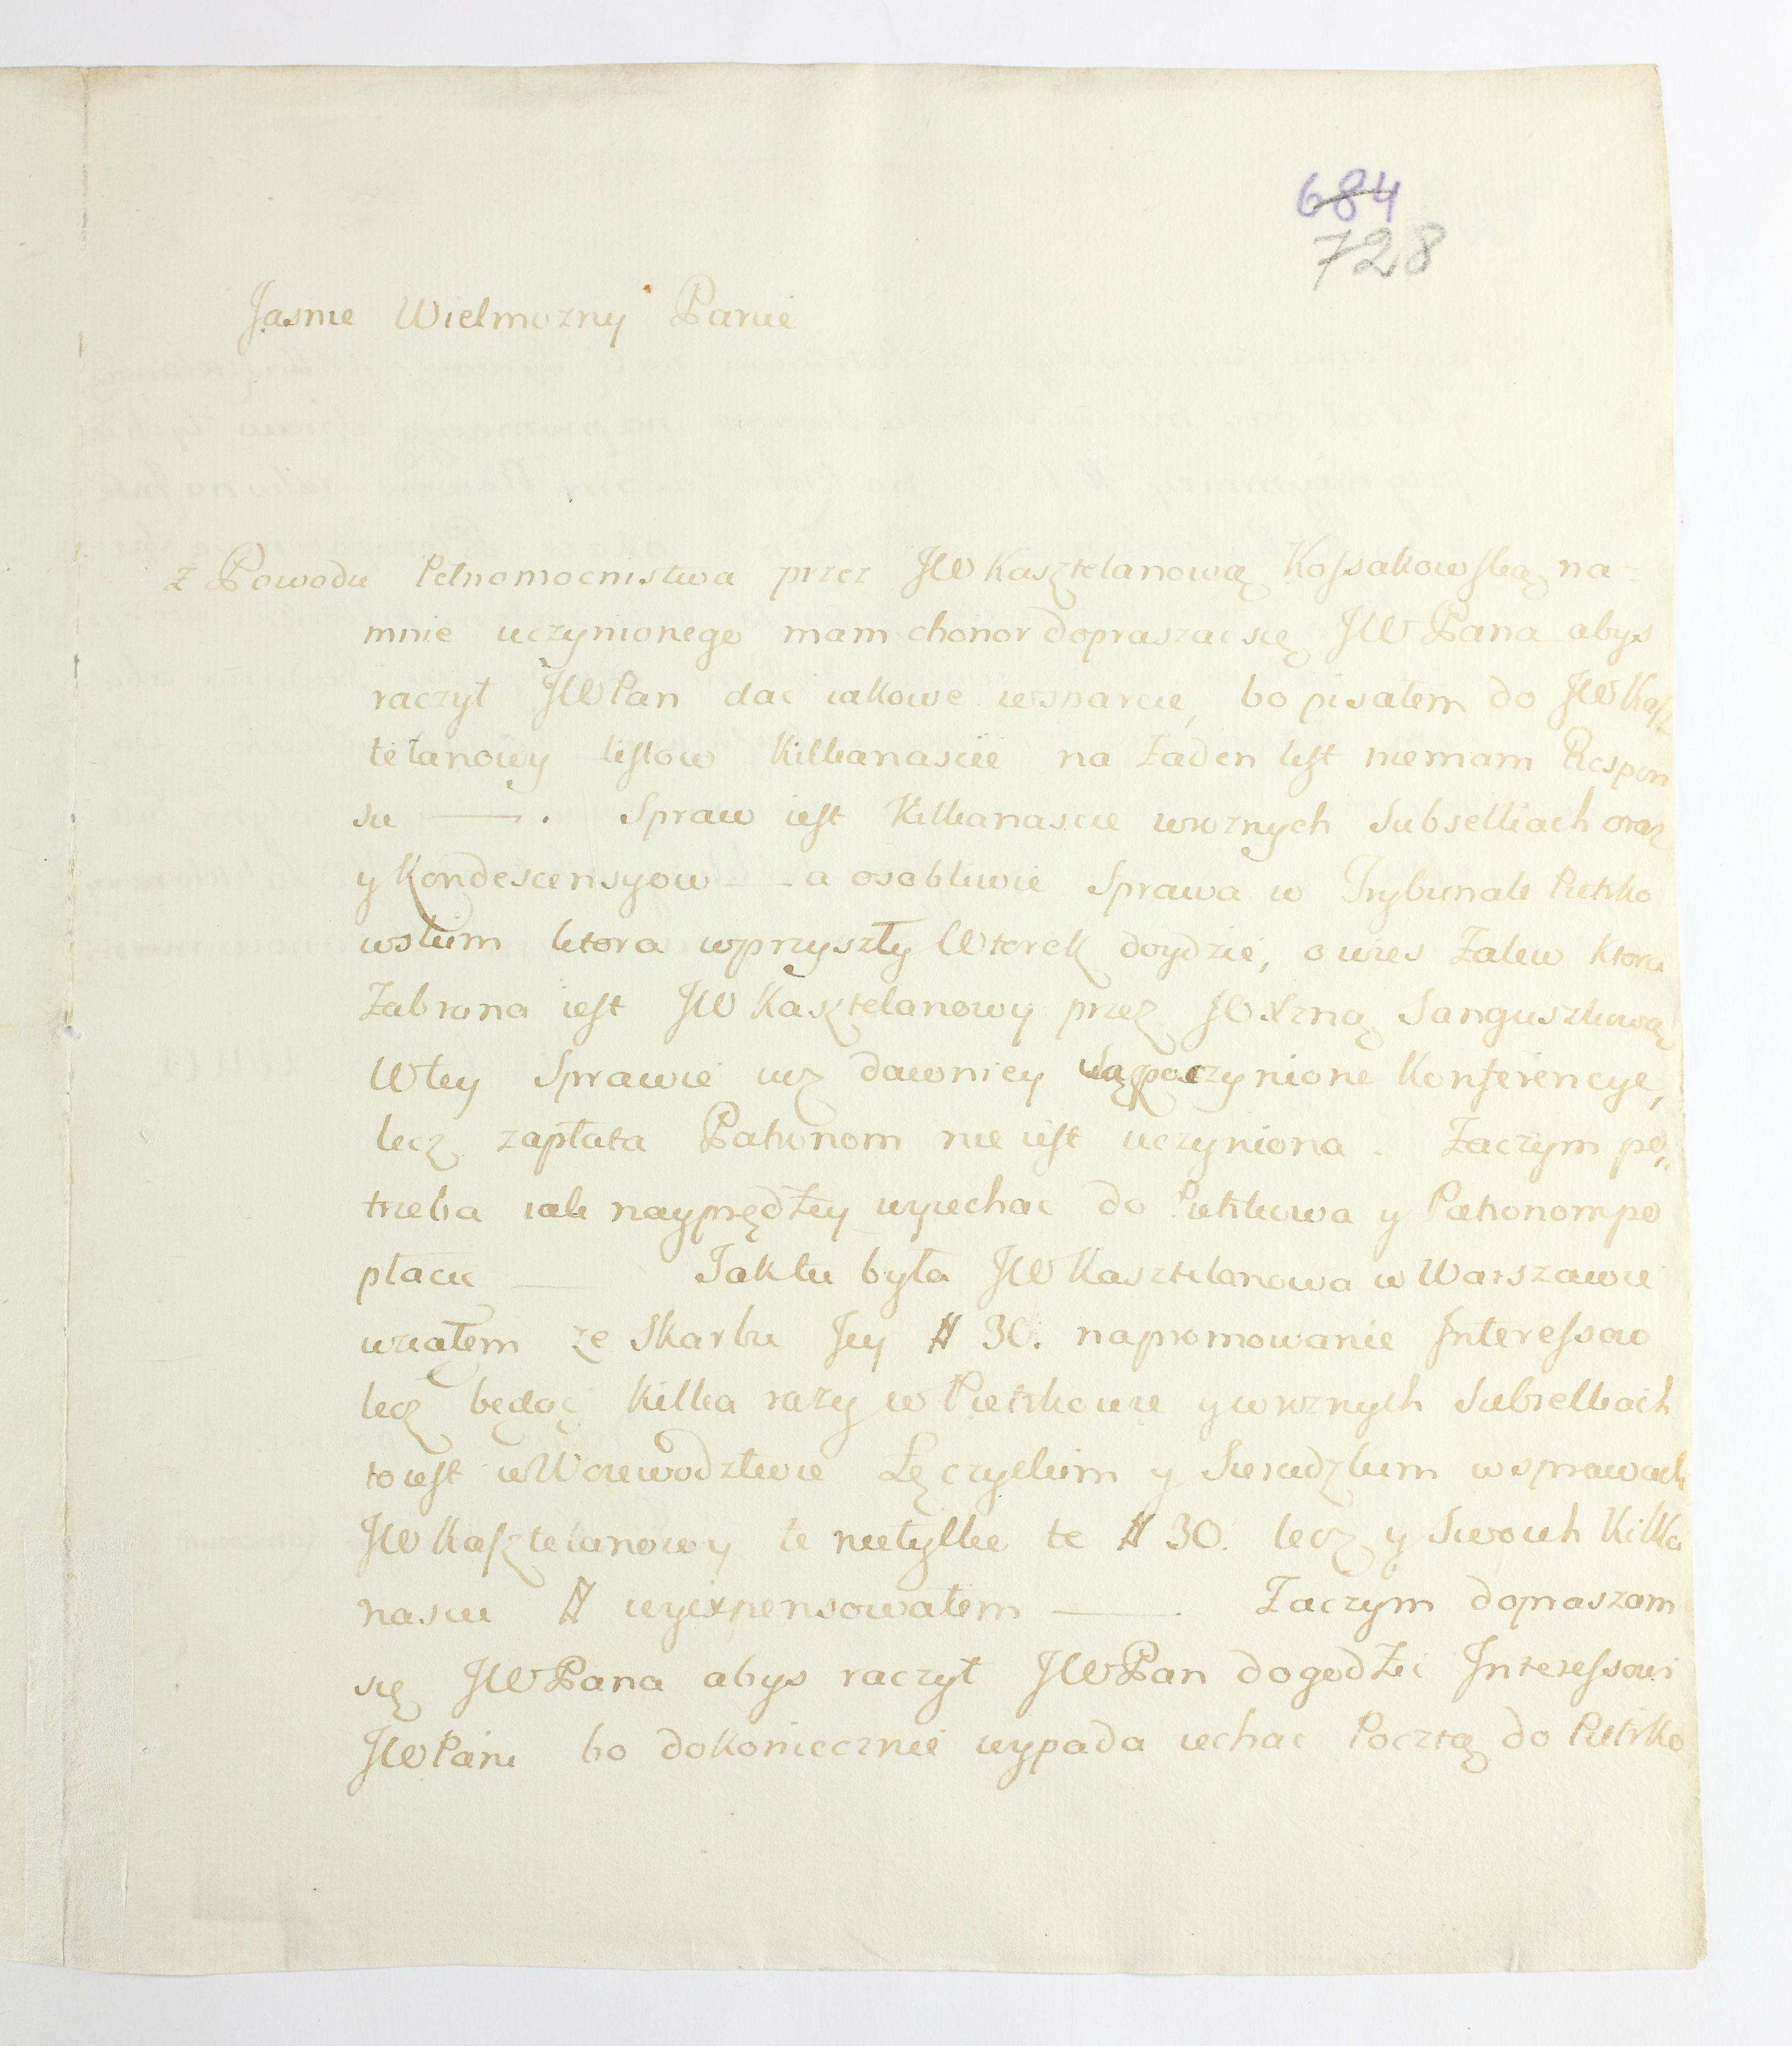 684
728
Jasnie Wielmozny Panie
z Powodu Pełnomocnistwa przez JW Kasztelanową Kossakowską na=
mnie uczynionego mam chonor dopraszac się JWPana abys
raczył JWPan dac iakowe wsparcie, bo pisałem do JWKasz
telanowy listow kilkanascie na Zaden list niemam Respon
su ——. Spraw iest Kilkanascie wroznych Subselliach oraz
y Kondescensyow —— a osobliwie Sprawa w Trybunale Pietrko
wskim ktora wprzyszły Wtorek doydzie, o wies Zalew ktora
Zabrana iest JW Kasztelanowy przez JOXzną Sanguszkową
Wtey Sprawie iuz dawniey są poczynione Konferencye,
lecz zapłata Patronom nie iest uczyniona. Zaczym po„
trzeba iak nayprędzey wyiechac do Pietrkowa y Patronom po
płacic —— Jak tu była JW Kasztelanowa w Warszawie
wziąłem ze Skarbu Jey # 30. na promowanie Interessow
lecz będąc kilka razy w Pietrkowie y wroznych Subselliach
to iest w Woiewodztwie Łęczyckim y Sieradzkim w sprawach
JW Kasztelanowy te nietylko te # 30. lecz y Swoich Kilka
nascie # wyexpensowałem —— Zaczym dopraszam
się JWPana abys raczył JWPan dogodzic Interessowi
JWPani bo dokoniecznie wypada iechac Pocztą do Pietrko